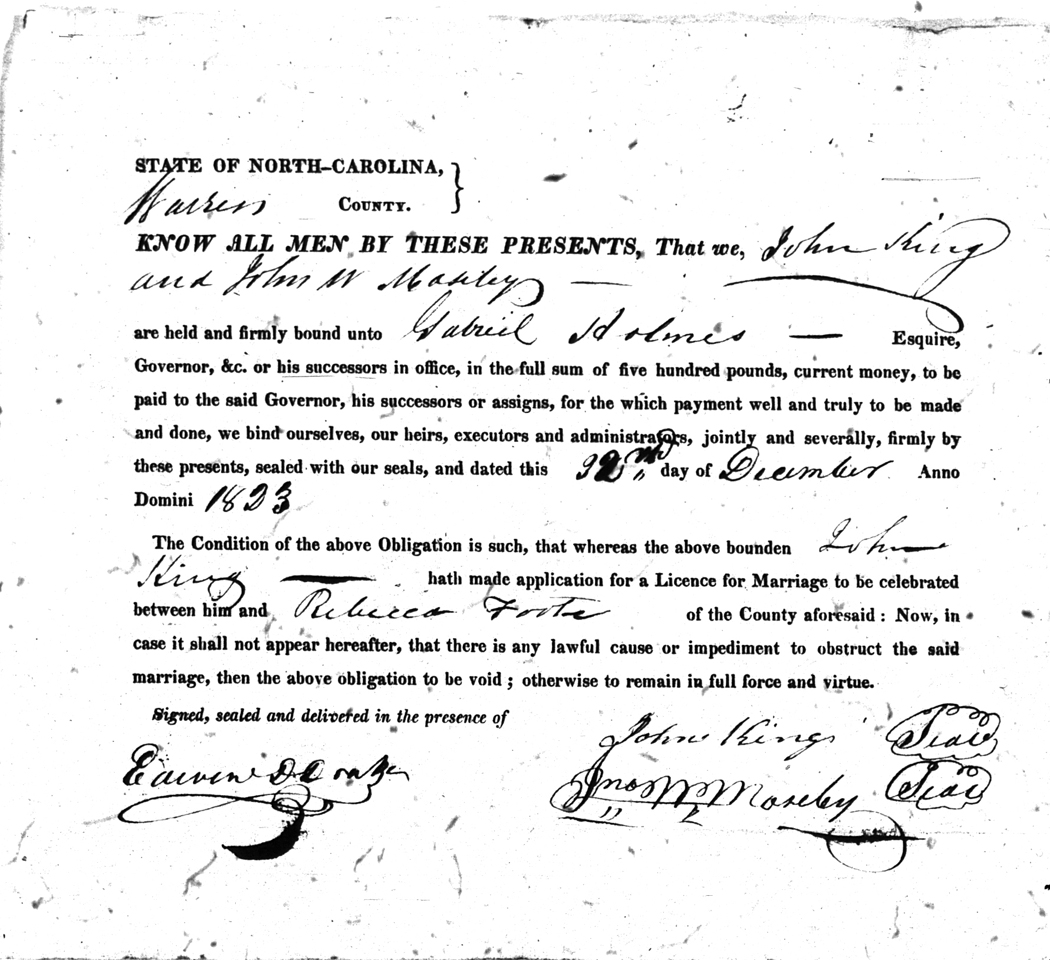 STATE OF NORTH-CAROLINA, }
Warren COUNTY.
KNOW ALL MEN BY THESE PRESENTS, That we, John King
and John W Moseley —
are held and firmly bound unto Gabriel Holmes — Esquire,
Governor, &c. or his successors in office, in the full sum of five hundred pounds, current money, to be
paid to the said Governor, his successors or assigns, for the which payment well and truly to be made
and done, we bind ourselves, our heirs, executors and administrators, jointly and severally, firmly by
these presents, sealed with our seals, and dated this 22nd day of December Anno
Domini 1823
The Condition of the above Obligation is such, that whereas the above bounden John
King — hath made application for a Licence for Marriage to be celebrated
between him and Rebecca Foote of the County aforesaid : Now, in
case it shall not appear hereafter, that there is any lawful cause or impediment to obstruct the said
marriage, then the above obligation to be void ; otherwise to remain in full force and virtue.
Signed, sealed and delivered in the presence of
John King Seal
Edwin D Drake
Jno W Moseley Seal